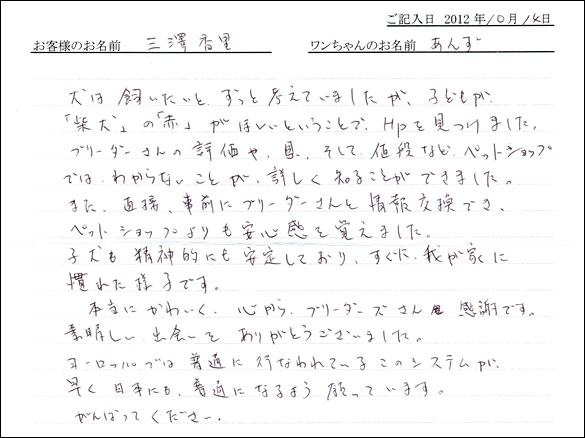 ご記入日 2012年10月14日
お客様のお名前 三澤香里 ワンちゃんのお名前 あんず
犬は飼いたいと、ずっと考えていましたが、子どもが、
「柴犬」の「赤」がほしいということで、Hpを見つけました。
ブリーダーさんの評価や、目、そして、値段など、ペットショップ
では、わからないことが、詳しく知ることができました。
また、直接、事前にブリーダーさんと情報交換でき、
ペットショップよりも安心感を覚えました。
子犬も精神的にも安定しており、すぐに、我が家に
慣れた様子です。
本当にかわいく、心から、ブリーダーズさん 感謝です。
素晴しい出会いをありがとうございました。
ヨーロッパでは普通に行なわれているこのシステムが、
早く日本にも、普通になるよう願っています。
がんばってください。